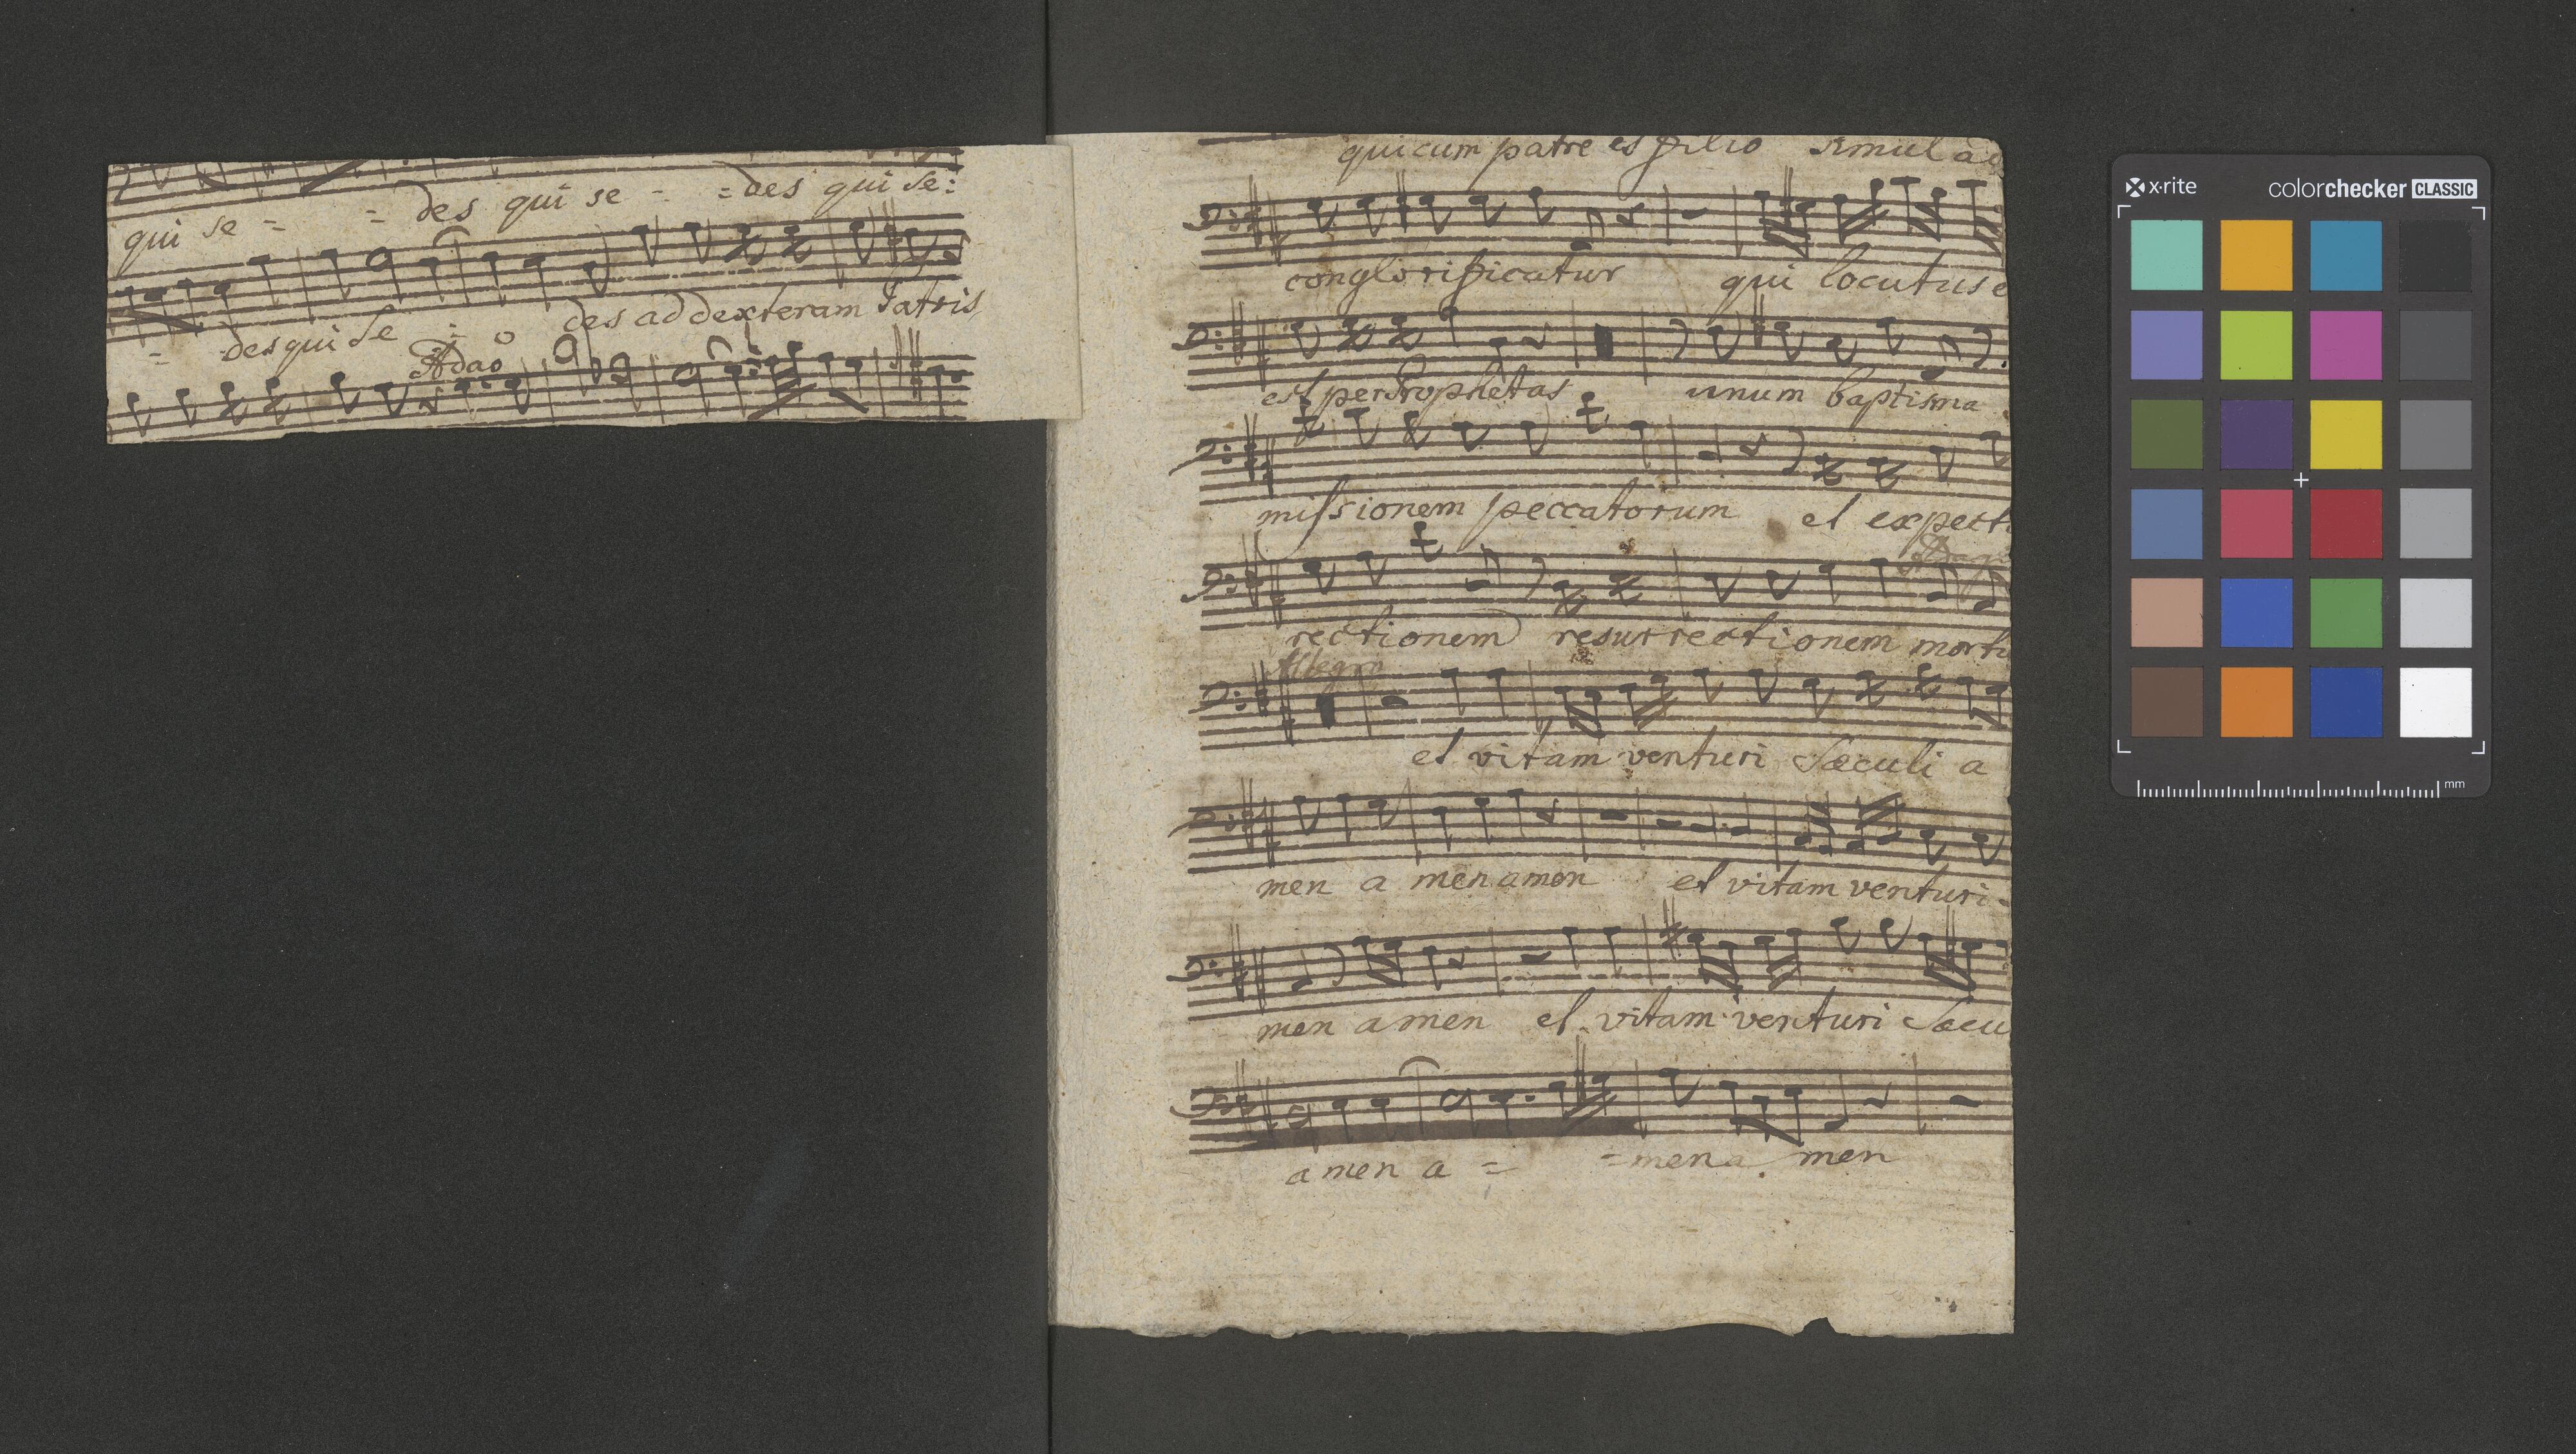 qui se = = des qui se - = des qui se:
= des qui se : o des ad dexteram Patris
Adao
qui cum patre et filio simul a
conglorificatur qui locutus e
est per Prophetas unum baptisma
missionem peccatorum et expect
Adag
rectionem resurrectionem mortu
Allegro
et vitam venturi Sæculi a
men a men amen et vitam venturi
men amen et vitam venturi Sæcu
a men a = = men a men
x·rite colorchecker CLASSIC
mm